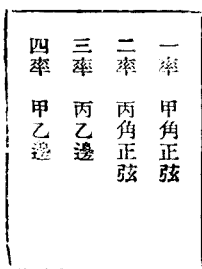 一率　甲角正弦
二率　丙角正弦
三率　丙乙邊
四率　甲乙邊